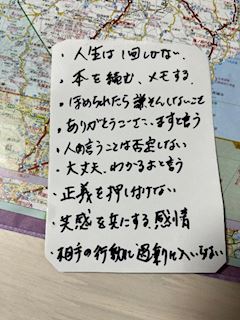 ・人生は1回しかない。
・本を読む、メモする
・ほめられたら謙そんしないこと
・ありがとうございますと言う
・人の言うことは否定しない
・大丈夫、わかるよと言う
・正義を押し付けない
・笑感を共にする感情
・相手の行動に過剰に入らない